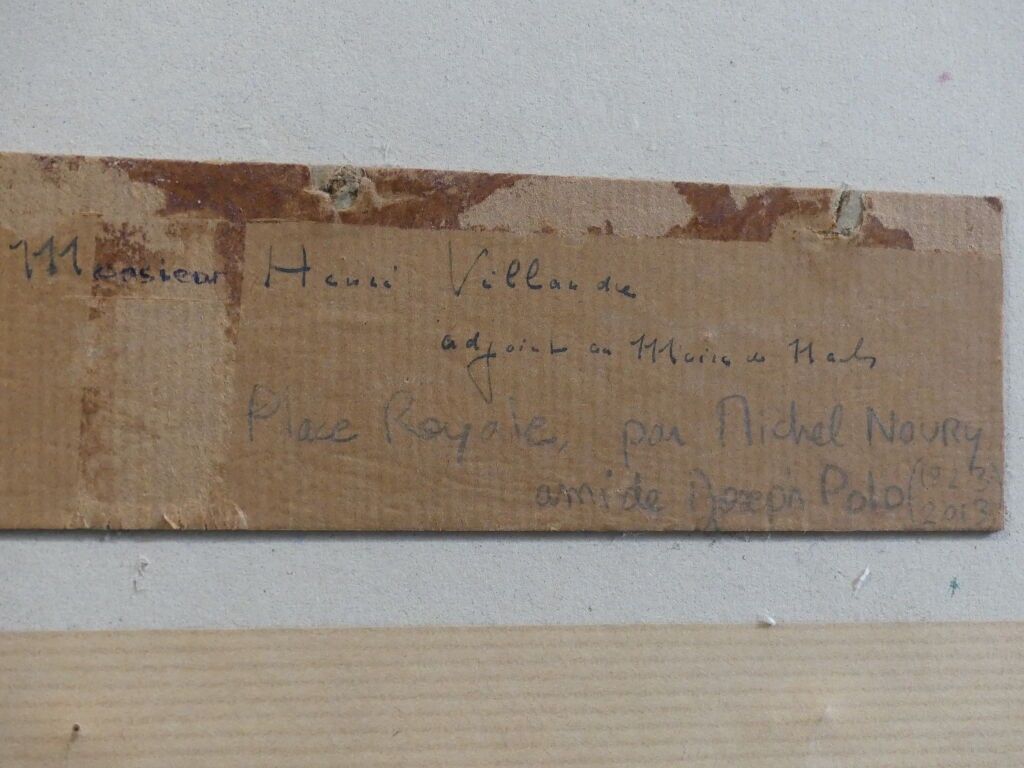 Monsieur Henri Villandre
adjoint au Maire de Nantes
Place Royale, par Michel NOURY
ami de Joseph Polo (
2013